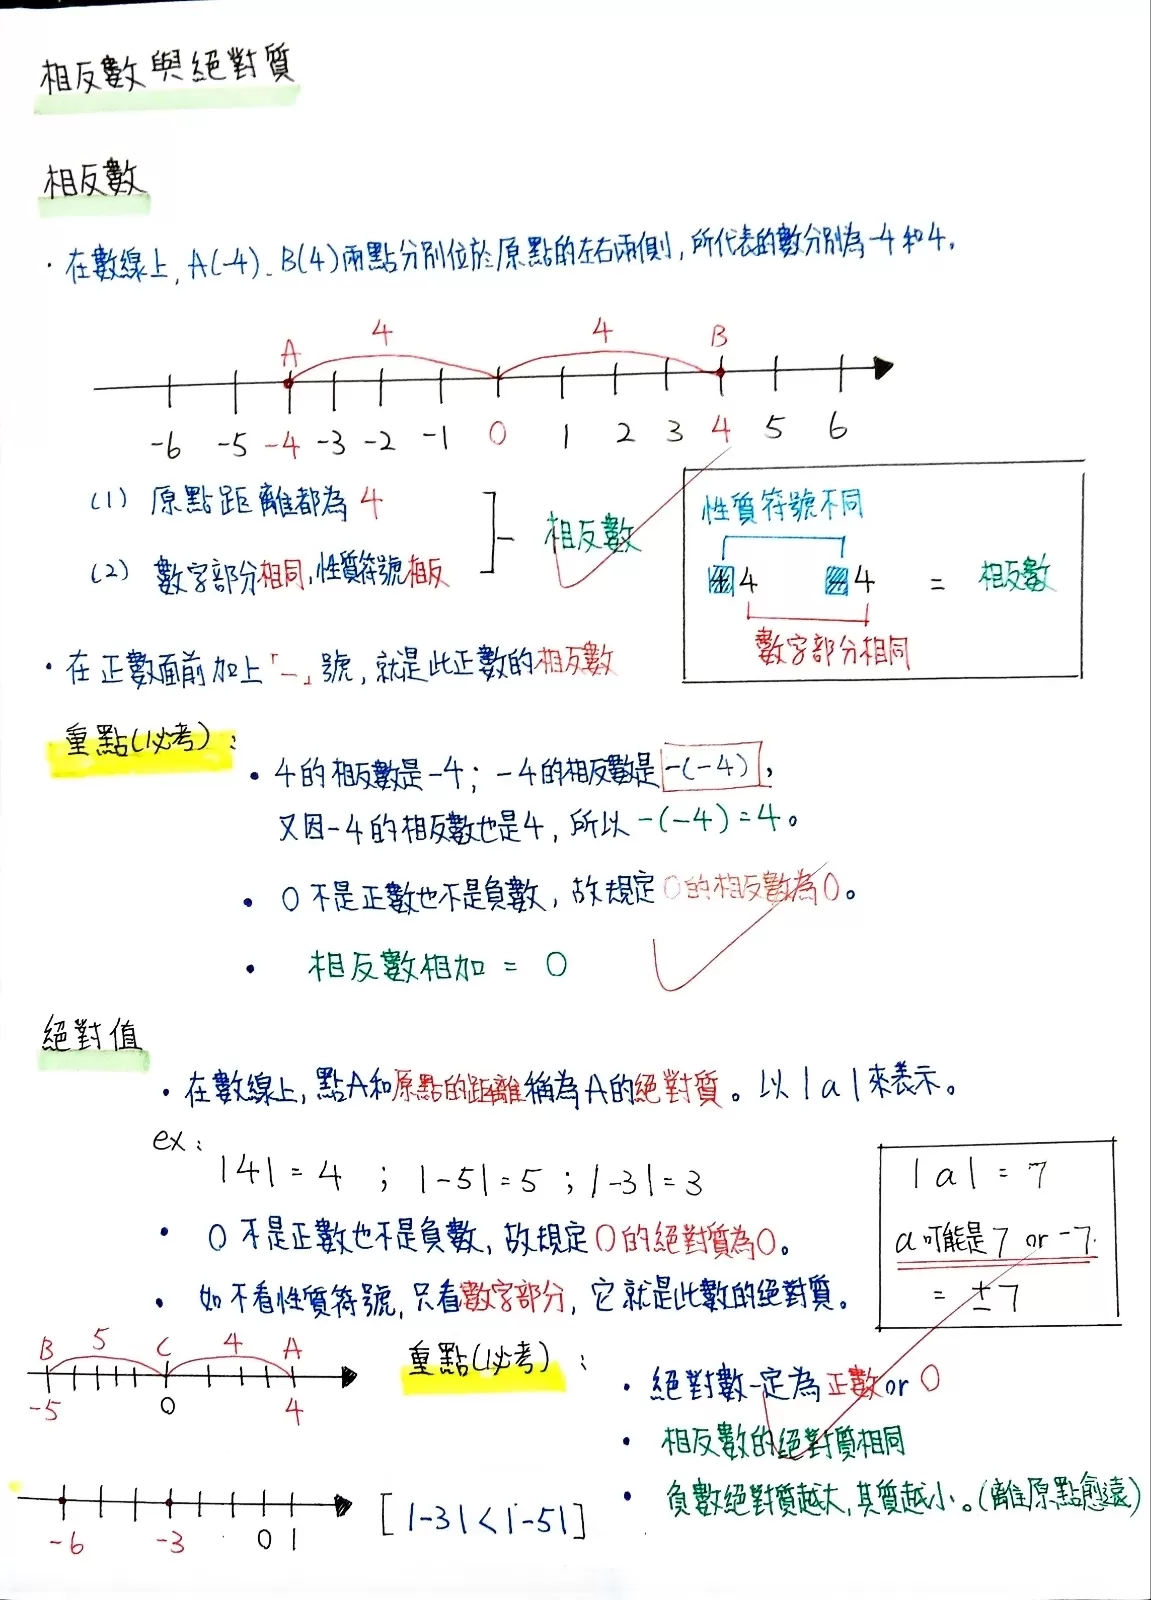 相反數與絕對質
相反數
·在數線上, A(-4)、B(4)兩點分別位於原點的左右兩側, 所代表的數分別為-4和4。
4 4
A B
-6 -5 -4 -3 -2 -1 0 1 2 3 4 5 6
(1) 原點距離都為4
(2) 數字部分相同,性質符號相反
相反數
性質符號不同
+4 -4 = 相反數
數字部分相同
·在正數面前加上「-」號, 就是此正數的相反數
重點(必考):
·4的相反數是-4; -4的相反數是-(-4),
又因-4的相反數也是4, 所以-(-4)=4。
·0不是正數也不是負數, 故規定0的相反數為0。
·相反數相加 = 0
絕對值
·在數線上, 點A和原點的距離稱為A的絕對質。以|a|來表示。
ex:
|4|=4 ; |-5|=5 ; |-3|=3
|a| = 7
a可能是7 or -7.
= ±7
·0不是正數也不是負數, 故規定0的絕對質為0。
·如不看性質符號, 只看數字部分, 它就是此數的絕對質。
B 5 C 4 A
-5 0 4
重點(必考):
·絕對數一定為正數or 0
·相反數的絕對質相同
·負數絕對質越大, 其質越小。(離原點愈遠)
-6 -3 0 1
[|-3|<|-5|]